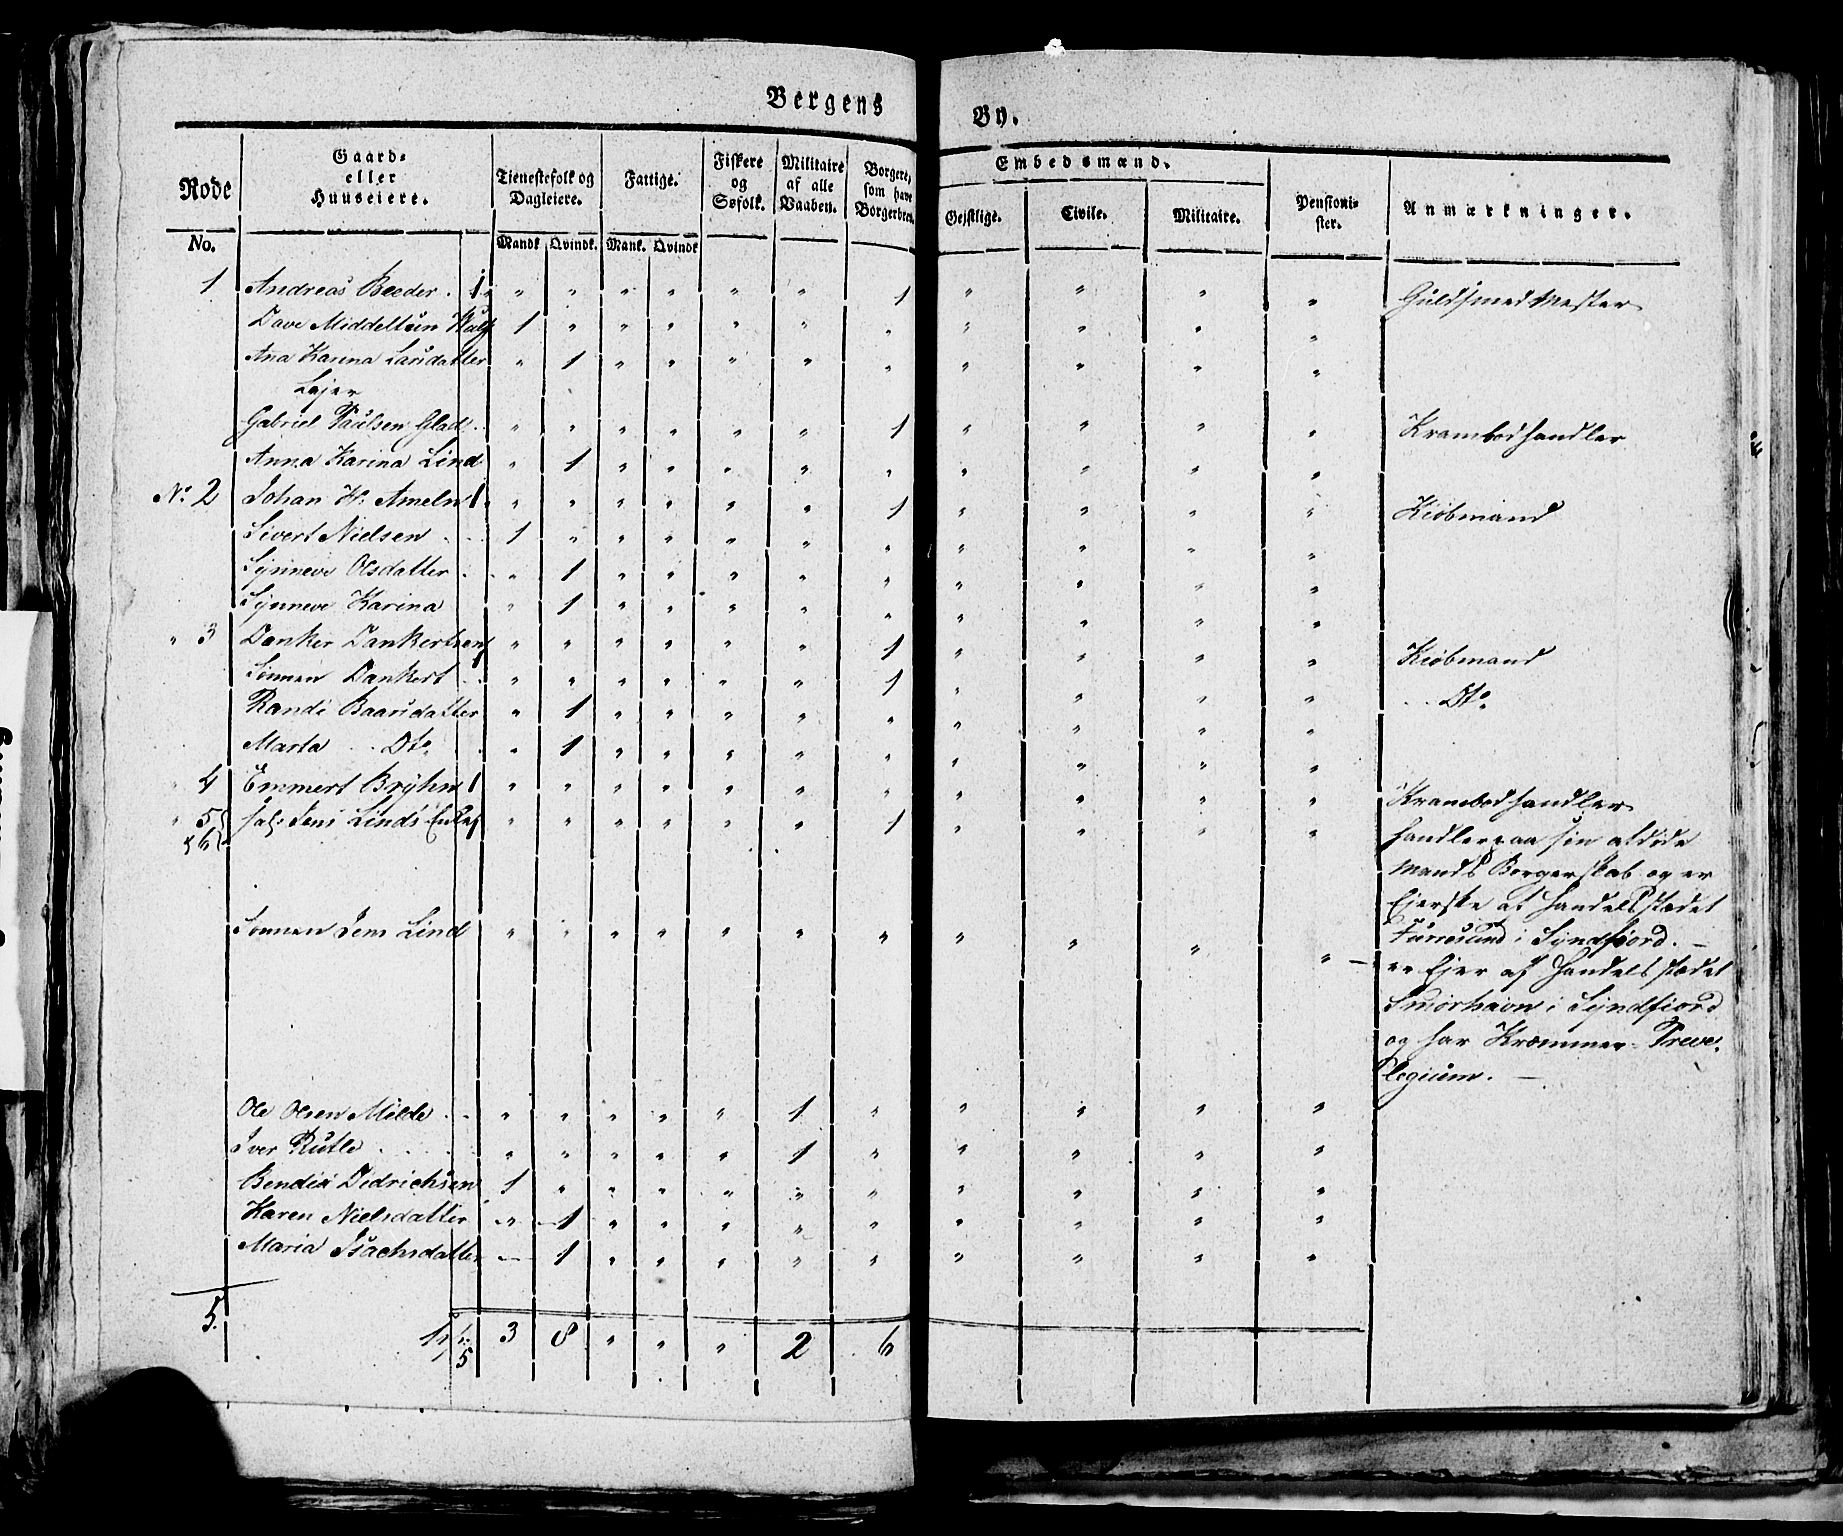 Bergens By.
Rode No.
Gaard- eller Huuseiere.
Tjenestefolk og Dagleiere.
Mandk. Qvindk.
Fattige.
Mank. Qvindk.
Fiskere og Søfolk.
Militaire af alle Vaaben.
Borgere, som have Borgerbrev.
Embedsmænd.
Gejstlige. Civile. Militaire.
Pensionister.
Anmærkninger.
1 Andreas Beeder . 1 " " " " " " 1 " " " " Guldsmed Mester
Dave Middeltun 1 " " " " " " " " " "
Ana Karina Larsdatter " 1 " " " " " " " " "
Lejer
Gabriel Paulsen Glad . " " " " " " 1 " " " " Krambodhandler
Anna Karina Lind " 1 " " " " " " " " "
No. 2 Johan H: Ameln 1 " " " " " " 1 " " " " Kiøbmand
Sivert Nielsen . . . 1 " " " " " " " " " "
Synneve Olsdatter . . " 1 " " " " " " " " "
Synneve Karina " 1 " " " " " " " " "
" 3 Danker Dankertsen 1 " " " " " " 1 " " " " Kiøbmand
Sønnen Dankert . . " " " " " " 1 " " " " . . Dto
Randi Baarsdatter " 1 " " " " " " " " "
Marta . . Dto . " 1 " " " " " " " " "
" 4 Emmert Brÿhn 1 " " " " " " " " " " " Krambodhandler
" 5 & 6 Sal: Jens Linds Enke 1 " " " " " " 1 " " " " handler paa sin afdøde
Mands Borgerskab og er
Ejerske af Handelsstædet
Sønnen Jens Lind " " " " " " " " " " " Furresund i Syndfiord. —
— er Ejer af Handelsstædet
Smørhavn i Syndfiord
og har Krammer Preve-
legium. —
Ole Olsen Milde . . " " " " " 1 " " " " "
Iver Rutle . . . . . " " " " " 1 " " " " "
Bendix Didrichsen 1 " " " " " " " " " "
Karen Nielsdatter " 1 " " " " " " " " "
Maria Isachsdatter — 1 " " " " " " " " "
5. 5 3 8 " " " 2 6